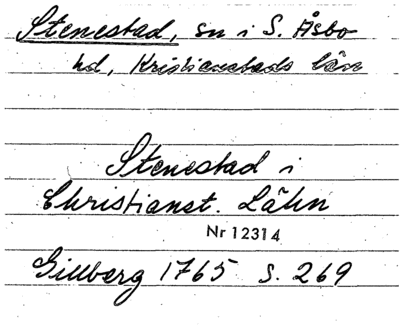 Stenestad, sn i S. Åsbo
hd, Kristianstads län
Stenestad i
Christianst. Lähn
Nr 12314
Gillberg 1765 s. 269